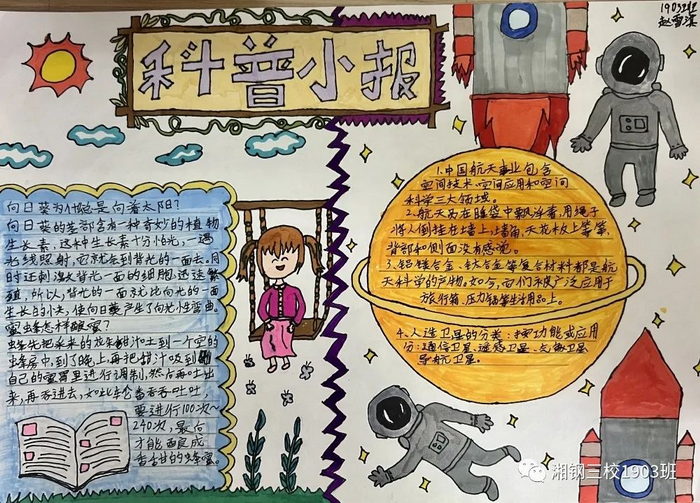 科普小报
1903班
向日葵为什么总是向着太阳?
向日葵的茎部含有一种奇妙的植物
生长素。这种生长素十分怕光,一遇
光线照射,它就跑到背光的一面去,同
时还刺激背光一面的细胞迅速繁
殖,所以,背光的一面就比向光的一面
生长的快,使向日葵产生了向光性弯曲。
蜜蜂怎样酿蜜?
蜂先把采来的花朵甜汁吐到一个空的
蜂房中,到了晚上,再把甜汁吸到
自己的蜜胃里进行调制,然后再吐出
来,再吞进去,如此轮番吞吞吐吐,
要进行100次~
240次,最后
才能酿成
香甜的蜂蜜。
1.中国航天事业包含
空间技术、空间应用和空间
科学三大领域。
2.航天员在睡袋中飘浮着,用绳子
将人倒挂在墙上,墙角,天花板上等等,
背部和侧面没有感觉。
3.铝镁合金、钛合金等复合材料都是航
天科学的产物,如今,它们被广泛应用于
旅行箱、压力锅等生活用品上。
4.人造卫星的分类:按功能或应用
分:通信卫星、遥感卫星、气象卫星
导航卫星。
湘钢三校1903班